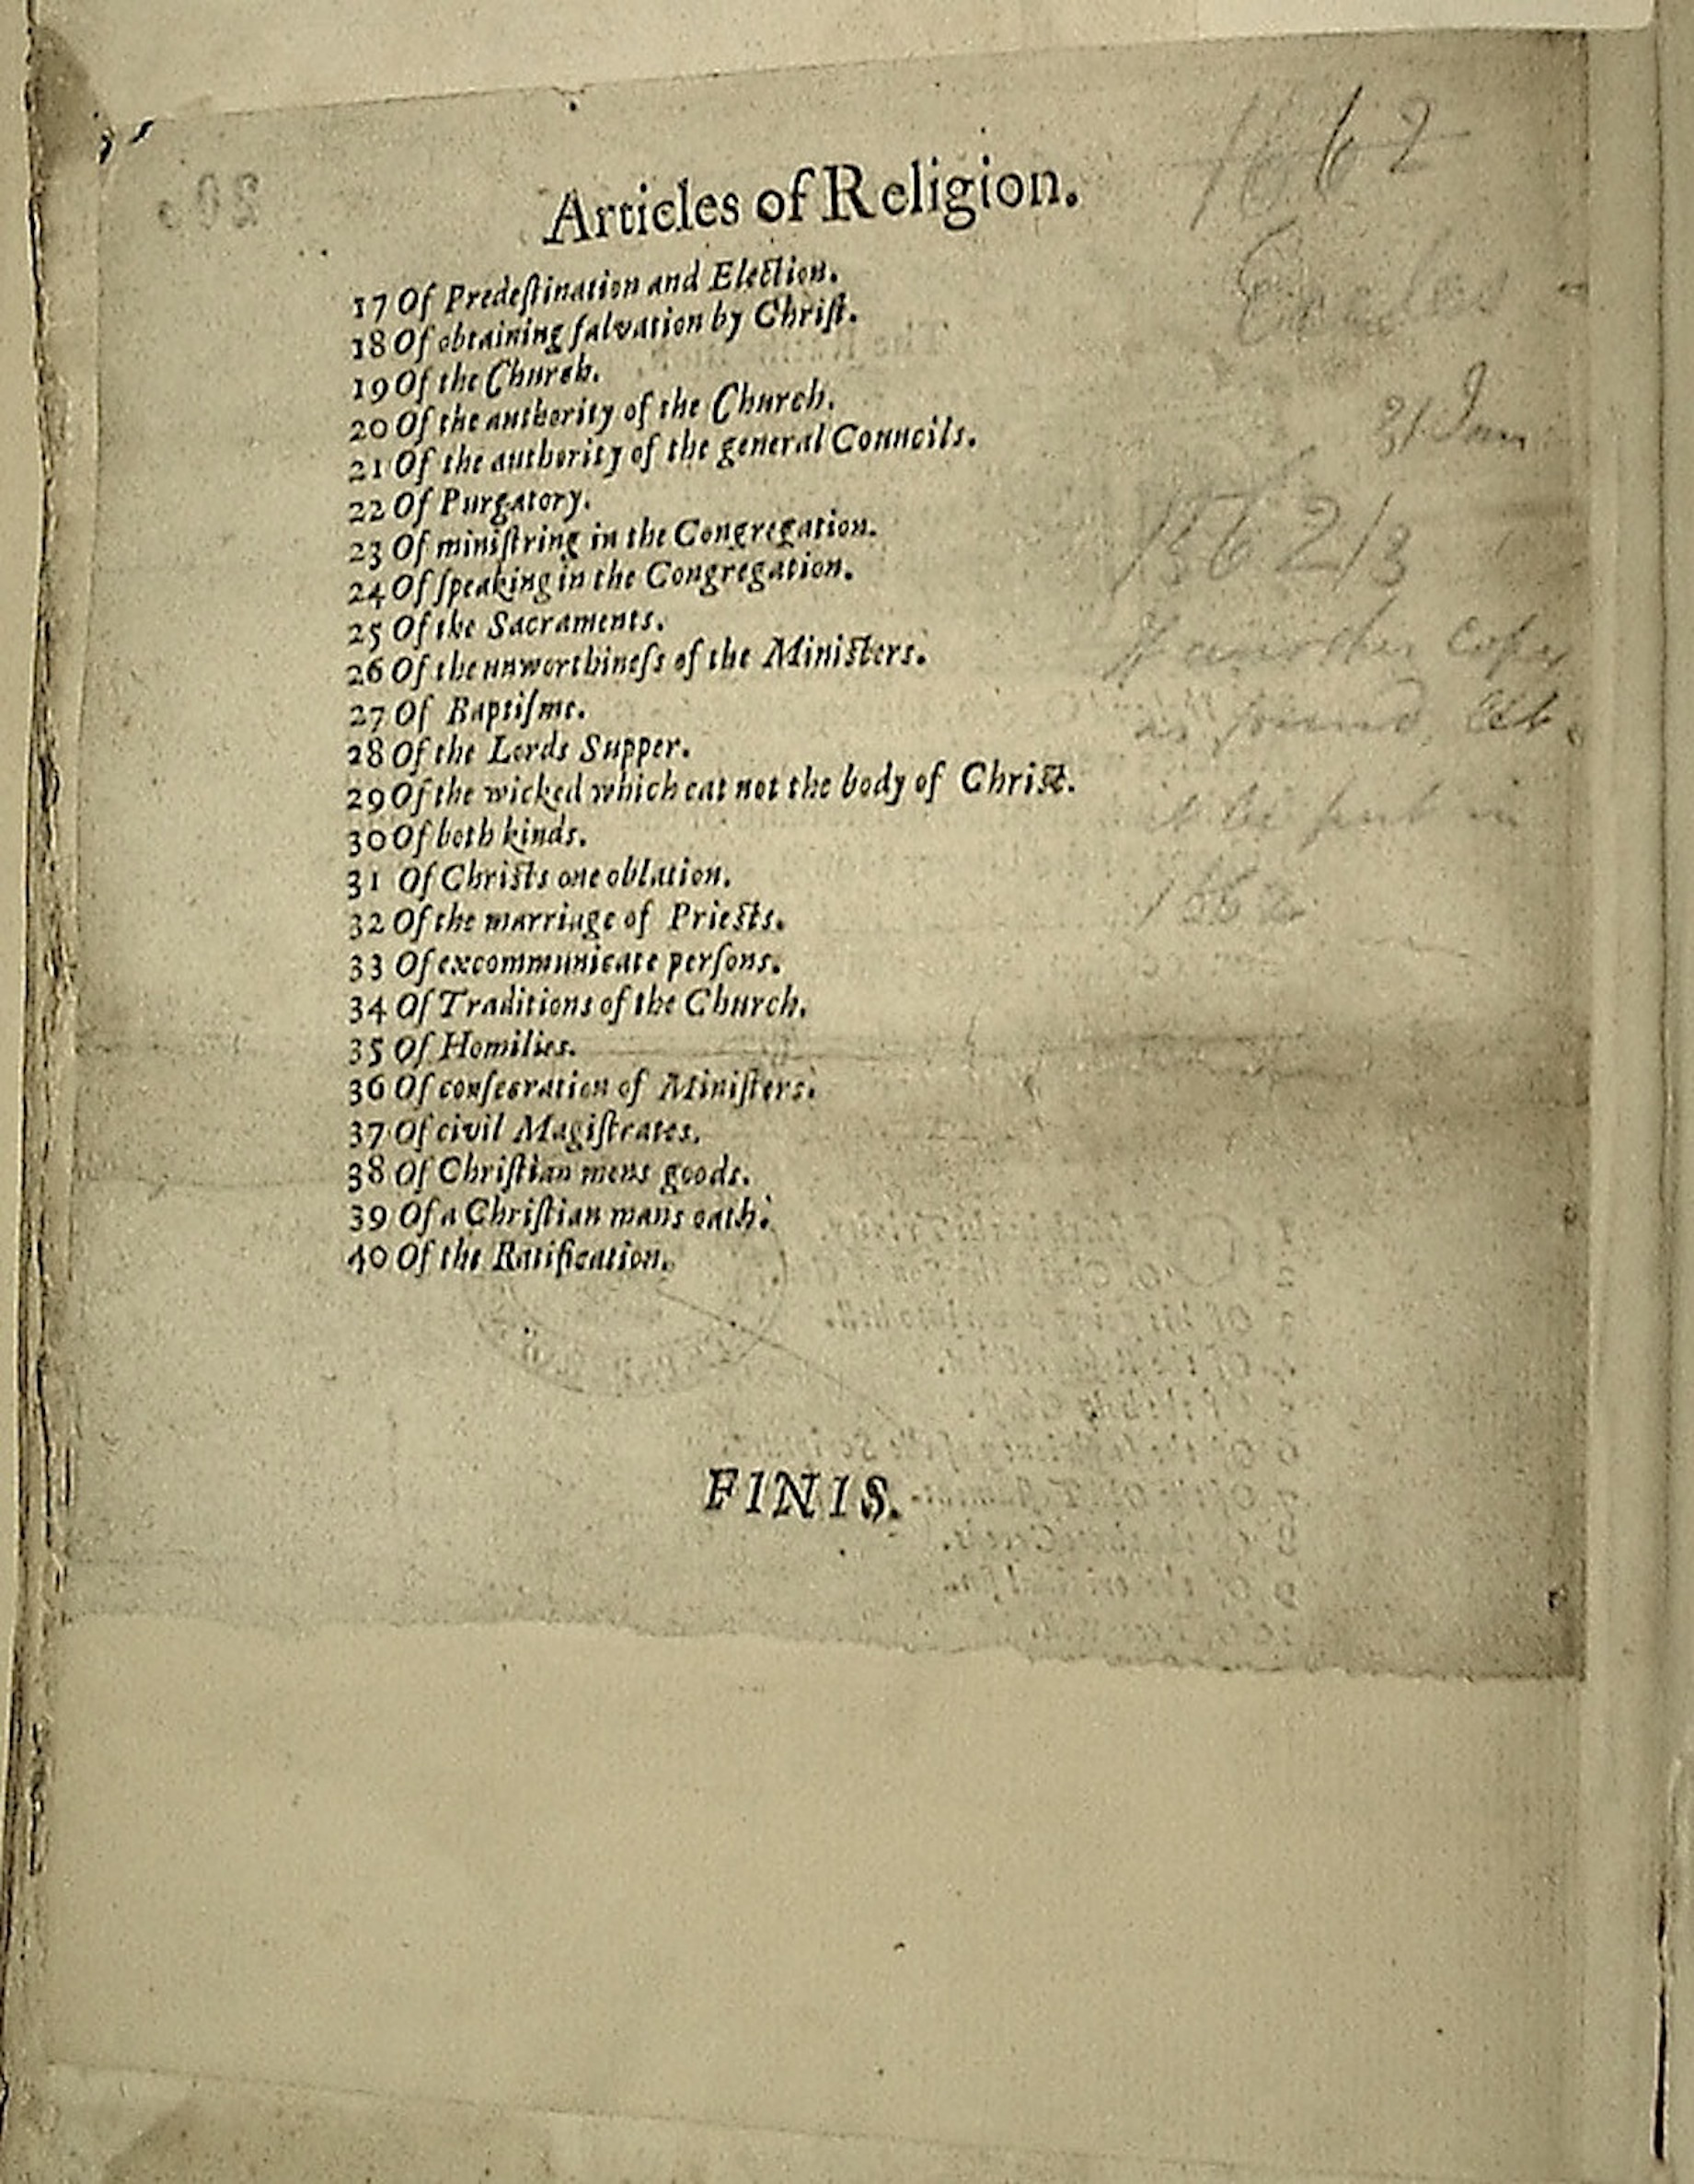 Articles of Religion.
17 Of Predeſtination and Election.
18 Of obtaining ſalvation by Chriſt.
19 Of the Church.
20 Of the authority of the Church.
21 Of the authority of the general Councils.
22 Of Purgatory.
23 Of miniſtring in the Congregation.
24 Of ſpeaking in the Congregation.
25 Of the Sacraments.
26 Of the unworthineſs of the Miniſters.
27 Of Baptiſme.
28 Of the Lords Supper.
29 Of the wicked which eat not the body of Chriſt.
30 Of both kinds.
31 Of Chriſts one oblation.
32 Of the marriage of Prieſts.
33 Of excommunicate perſons.
34 Of Traditions of the Church.
35 Of Homilies.
36 Of conſecration of Miniſters.
37 Of civil Magiſtrates.
38 Of Chriſtian mens goods.
39 Of a Chriſtian mans oath.
40 Of the Ratification.
FINIS.
1662
31 Jan
1562/3
If another copy
is found, let
it be put in
1662